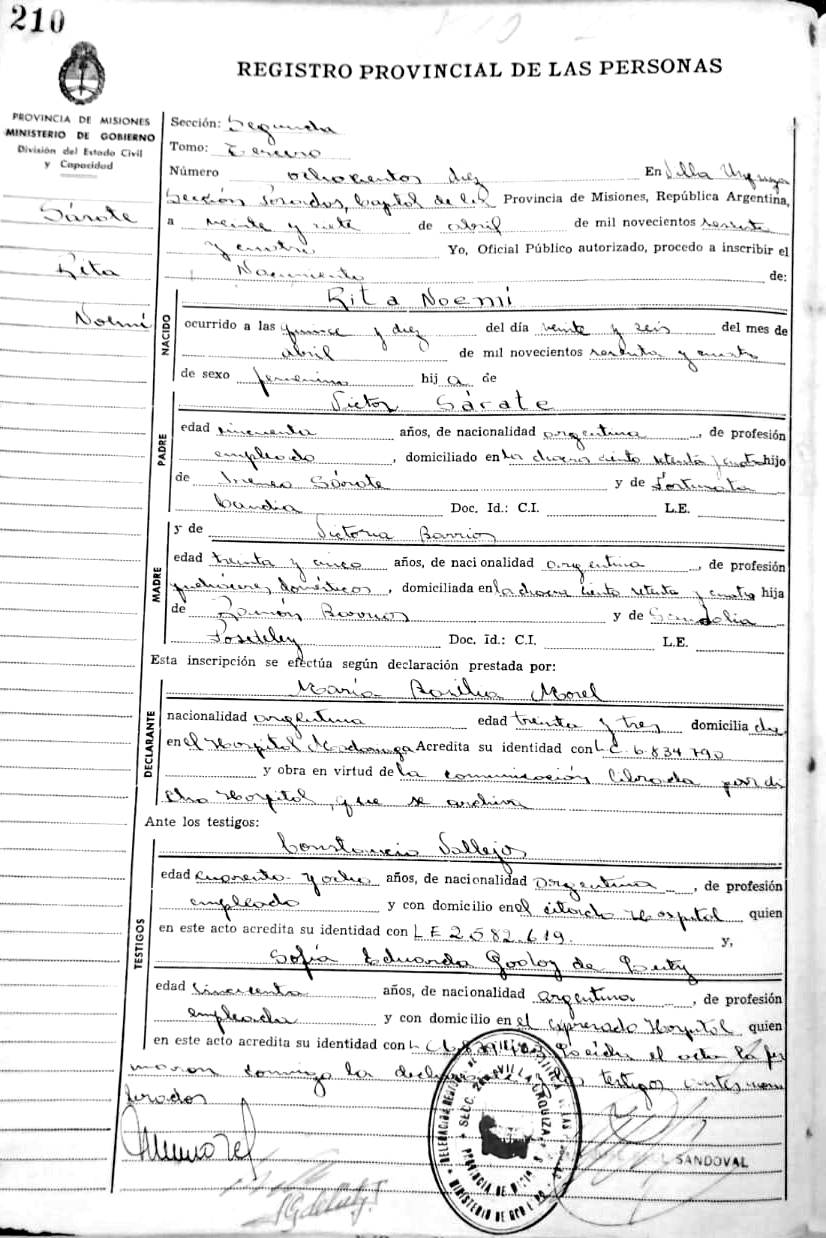 210
REGISTRO PROVINCIAL DE LAS PERSONAS
PROVINCIA DE MISIONES
MINISTERIO DE GOBIERNO
División del Estado Civil
y Capacidad
Sárate
Rita
Noemí
Sección: Segunda
Tomo: Tercero
Número ochocientos diez En Villa Urquiza
Sección Posadas, Capital de la Provincia de Misiones, República Argentina,
a veinte y siete de abril de mil novecientos sesenta
y cuatro Yo, Oficial Público autorizado, procedo a inscribir el
Nacimiento de:
NACIDO
Rita Noemí
ocurrido a las quince y diez del día veinte y seis del mes de
abril de mil novecientos sesenta y cuatro
de sexo femenino hija de
PADRE
Victor Sárate
edad cincuenta años, de nacionalidad argentina, de profesión
empleado, domiciliado en ciento setenta y cuatro hijo
de Ireneo Sárate y de Fortunata
Candia Doc. Id.: C.I. L.E.
MADRE
y de Victoria Barrios
edad treinta y cinco años, de nacionalidad argentina, de profesión
quehaceres domésticos, domiciliada en la chacra ciento setenta y cuatro hija
de Ramón Barrios y de
Doc. Id.: C.I. L.E.
Esta inscripción se efectúa según declaración prestada por:
DECLARANTE
María Basilia Morel
nacionalidad argentina edad treinta y tres domicilia da
en el Hospital Madariaga Acredita su identidad con L.C. 6.834.790
y obra en virtud de la comunicación librada por di
cho Hospital, que se archiva
Ante los testigos:
TESTIGOS
Constancio Vallejos
edad cuarenta y ocho años, de nacionalidad argentina, de profesión
empleado y con domicilio en el citado Hospital quien
en este acto acredita su identidad con L E 2.582.619. y,
Sofía Eduarda Godoy de
edad cincuenta años, de nacionalidad argentina, de profesión
empleada y con domicilio en el expresado Hospital quien
en este acto acredita su identidad con L C el acta la fir
maron conmigo la testigos antes nom
brados
VILLA URQUIZA
PROVINCIA DE
MINISTERIO DE
SANDOVAL